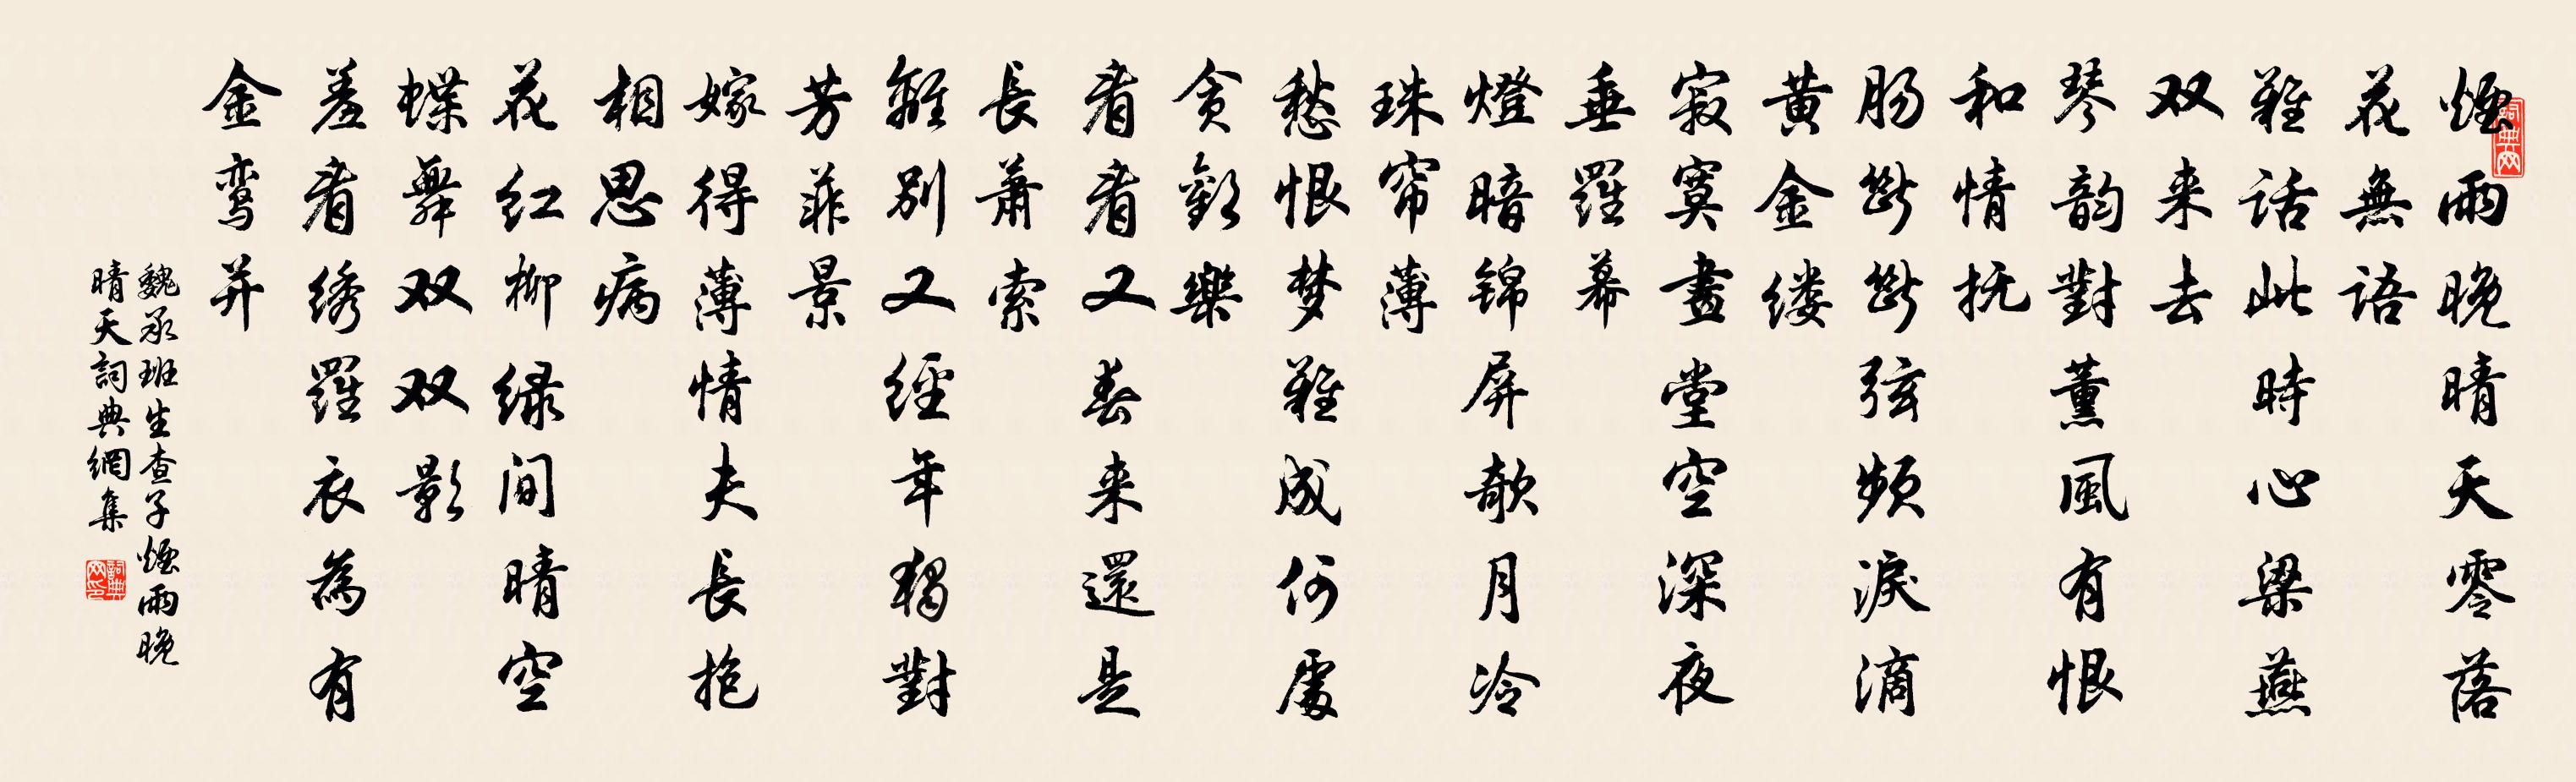 煙雨晚晴天零落
花無語
難話此時心梁燕
双来去
琴韵對薰風有恨
和情抚
肠断断弦频淚滴
黄金缕
寂寞畫堂空深夜
垂羅幕
燈暗锦屏欹月冷
珠帘薄
愁恨梦難成何處
贪歡樂
看看又春来還是
長萧索
離别又經年獨對
芳菲景
嫁得薄情夫長抱
相思病
花红柳绿间晴空
蝶舞双双影
羞看绣羅衣為有
金鸾并
魏承班生查子煙雨晚
晴天詞典網集
詞典网
詞典网印